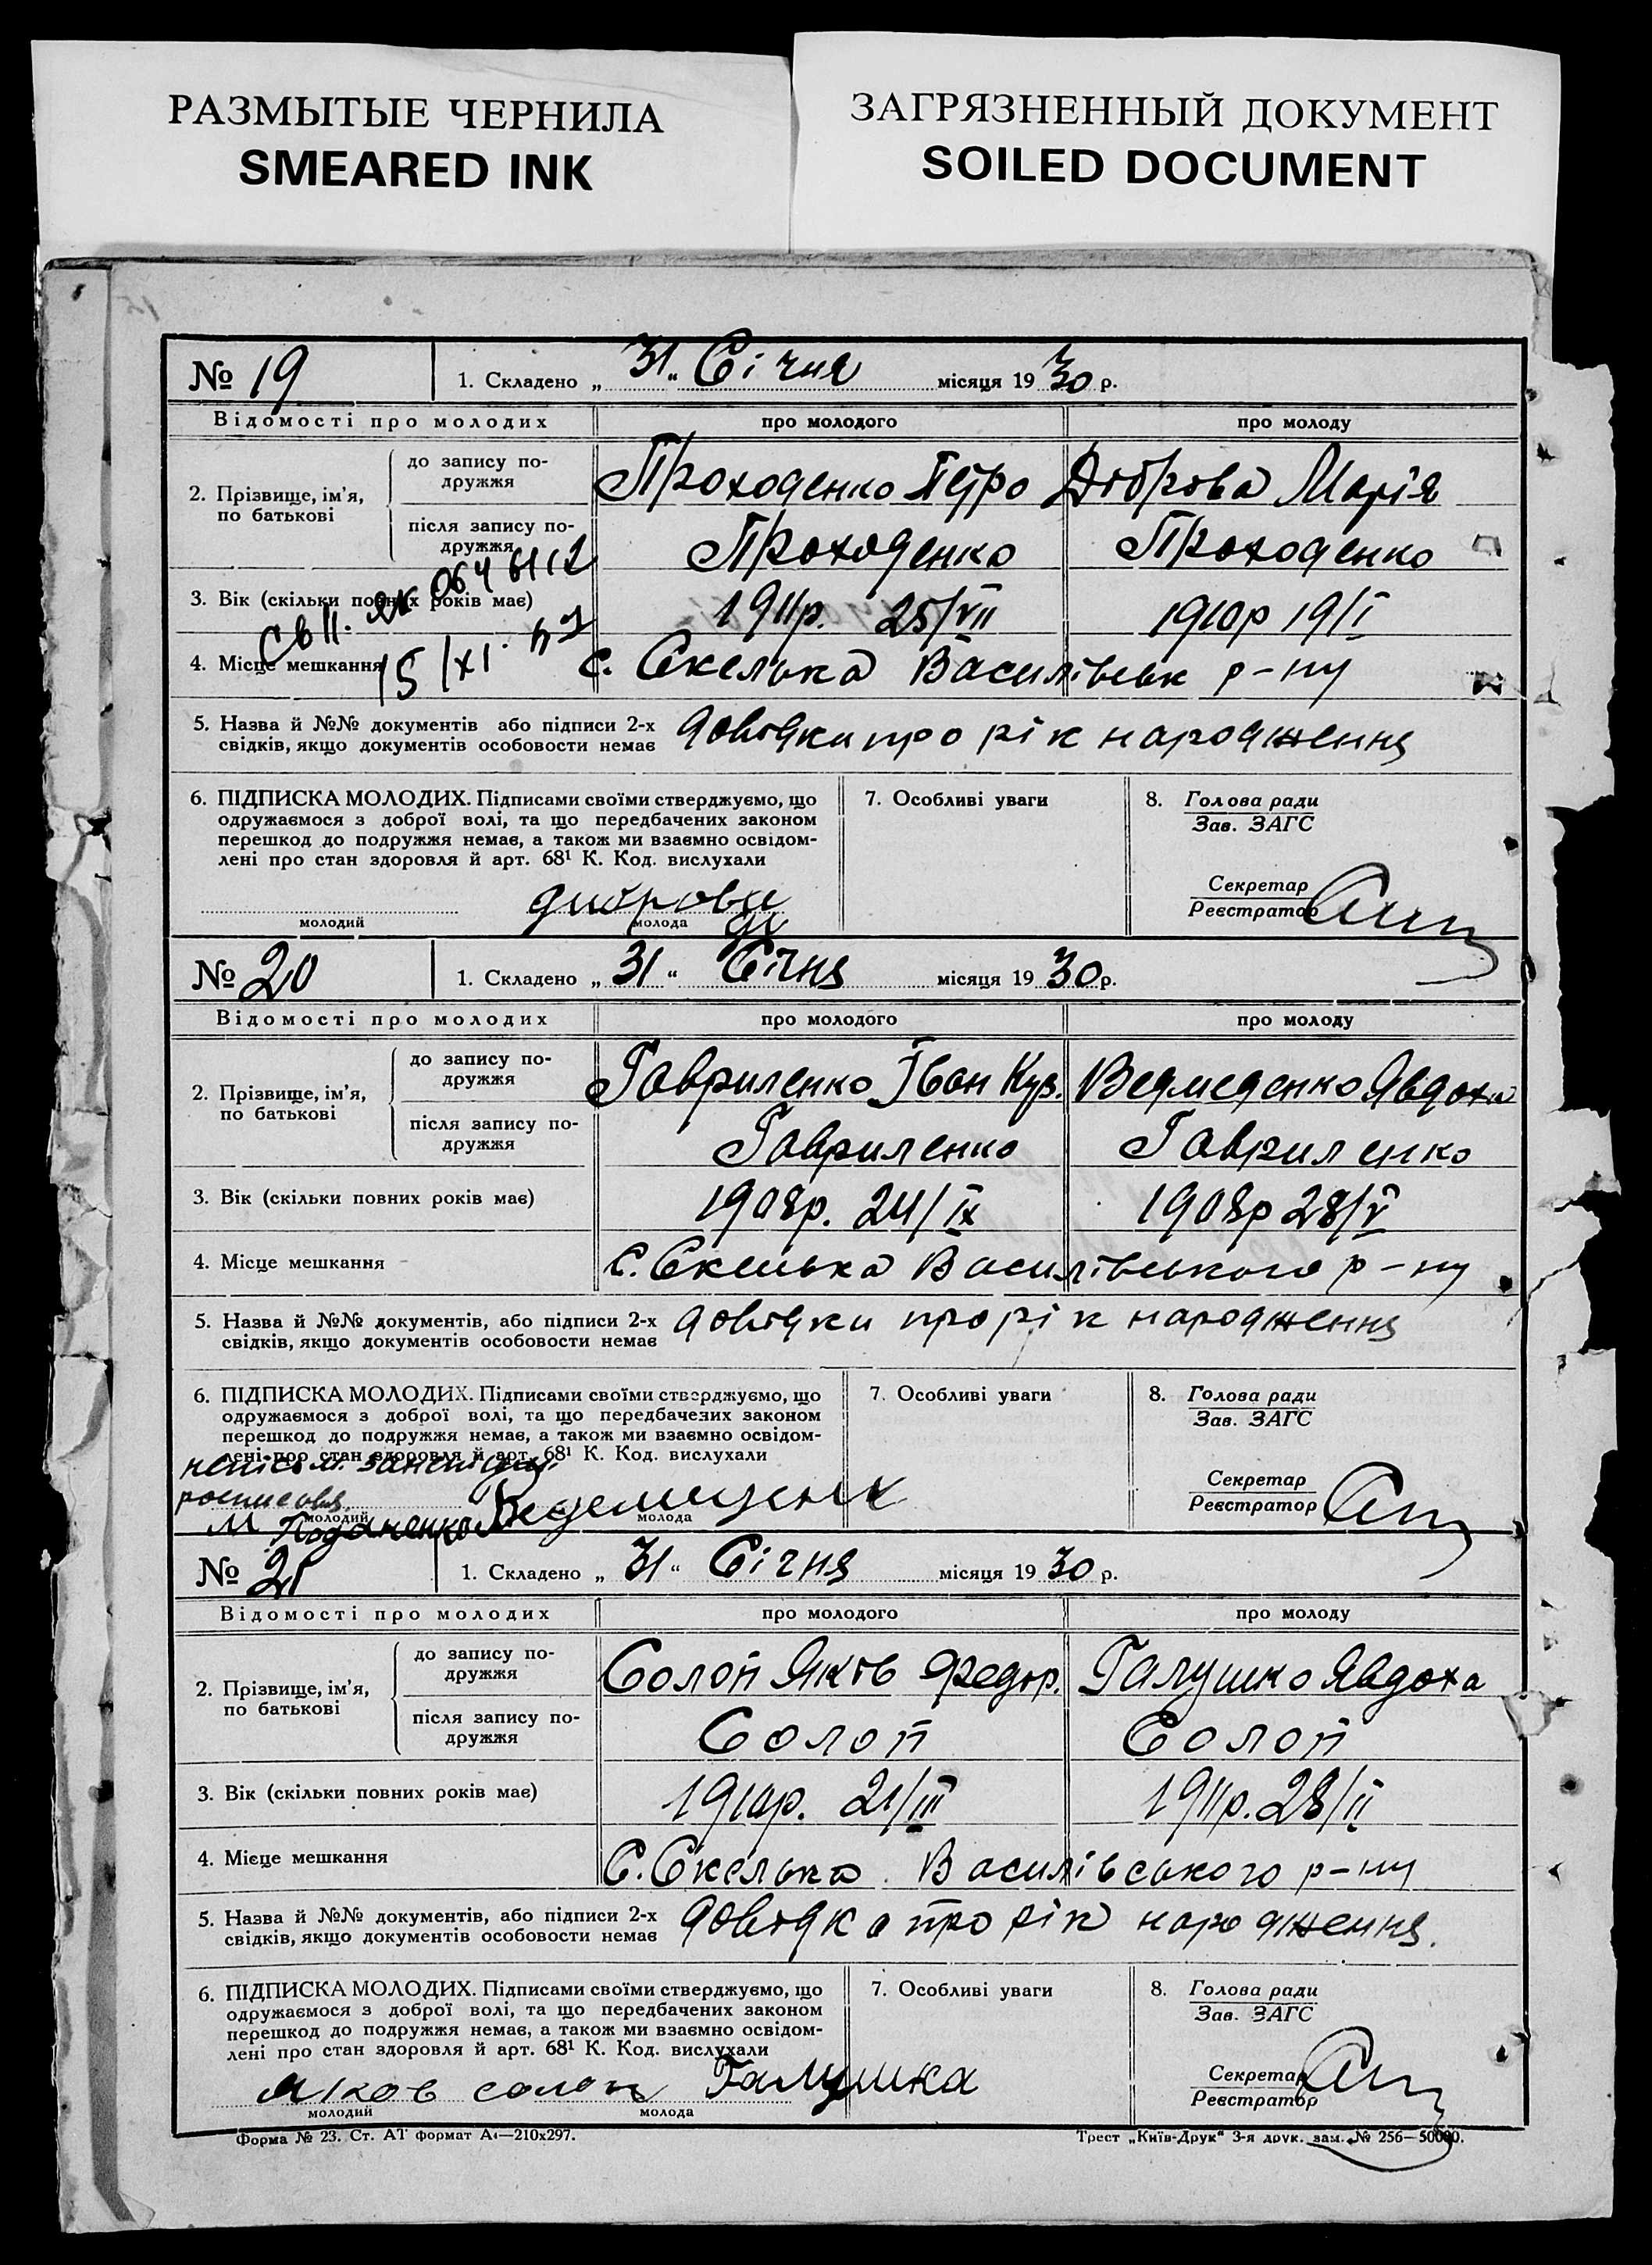 РАЗМЫТЫЕ ЧЕРНИЛА
SMEARED INK
ЗАГРЯЗНЕННЫЙ ДОКУМЕНТ
SOILED DOCUMENT
№ 19 1. Складено „ 31 “ Січня місяця 19 30 р.
Відомості про молодих про молодого про молоду
2. Прізвище, ім’я, по батькові
до запису подружжя Проходенко Петро Діброва Марія
після запису подружжя Проходенко Проходенко
3. Вік (скільки повних років має) 1911р. 25/VII 1910р 19/I
4. Місце мешкання с. Скелька Василівськ р-ну
15/XI
5. Назва й №№ документів або підписи 2-х
свідків, якщо документів особовости немає
довідки про рік народження
6. ПІДПИСКА МОЛОДИХ. Підписами своїми стверджуємо, що
одружаємося з доброї волі, та що передбачених законом
перешкод до подружжя немає, а також ми взаємно освідом-
лені про стан здоровля й арт. 68¹ К. Код. вислухали
молодий молода
7. Особливі уваги
8. Голова ради
Зав. ЗАГС
Секретар
Реєстратор
№ 20 1. Складено „ 31 “ Січня місяця 19 30 р.
Відомості про молодих про молодого про молоду
2. Прізвище, ім’я, по батькові
до запису подружжя Гавриленко Іван Куз. Ведмеденко Явдоха
після запису подружжя Гавриленко Гавриленко
3. Вік (скільки повних років має) 1908р. 24/IX 1908р 28/V
4. Місце мешкання С. Скелька Василівського р-ну
5. Назва й №№ документів, або підписи 2-х
свідків, якщо документів особовости немає
довідки про рік народження
6. ПІДПИСКА МОЛОДИХ. Підписами своїми стверджуємо, що
одружаємося з доброї волі, та що передбачених законом
перешкод до подружжя немає, а також ми взаємно освідом-
лені про стан здоровля й арт. 68¹ К. Код. вислухали
молодий молода
7. Особливі уваги
8. Голова ради
Зав. ЗАГС
Секретар
Реєстратор
№ 21 1. Складено „ 31 “ Січня місяця 19 30 р.
Відомості про молодих про молодого про молоду
2. Прізвище, ім’я, по батькові
до запису подружжя Солоп Яків Федор. Галушко Явдоха
після запису подружжя Солоп Солоп
3. Вік (скільки повних років має) 1910р. 21/III 1911р. 28/II
4. Місце мешкання С. Скелька Василівського р-ну
5. Назва й №№ документів, або підписи 2-х
свідків, якщо документів особовости немає
довідка про рік народження.
6. ПІДПИСКА МОЛОДИХ. Підписами своїми стверджуємо, що
одружаємося з доброї волі, та що передбачених законом
перешкод до подружжя немає, а також ми взаємно освідом-
лені про стан здоровля й арт. 68¹ К. Код. вислухали
Яков солоп Галушка
молодий молода
7. Особливі уваги
8. Голова ради
Зав. ЗАГС
Секретар
Реєстратор
Форма № 23. Ст. АТ формат А4—210x297.
Трест „Київ-Друк“ 3-я друк. зам. № 256—50000.